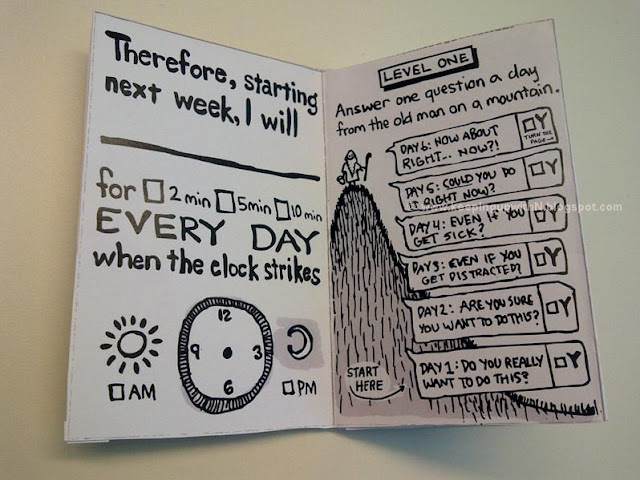 Therefore, starting
next week, I will
for □ 2 min □ 5min □ 10 min
EVERY DAY
when the clock strikes
12
9 3
6
□ AM □ PM
LEVEL ONE
Answer one question a day
from the old man on a mountain.
DAY 6: NOW ABOUT
RIGHT... NOW?!
□Y
TURN THE
PAGE→
DAY 5: COULD YOU DO
IT RIGHT NOW?
□Y
DAY 4: EVEN IF YOU
GET SICK?
□Y
DAY 3: EVEN IF YOU
GET DISTRACTED?
□Y
DAY 2: ARE YOU SURE
YOU WANT TO DO THIS?
□Y
DAY 1: DO YOU REALLY
WANT TO DO THIS?
□Y
START
HERE
www.keepingupwithN.blogspot.com